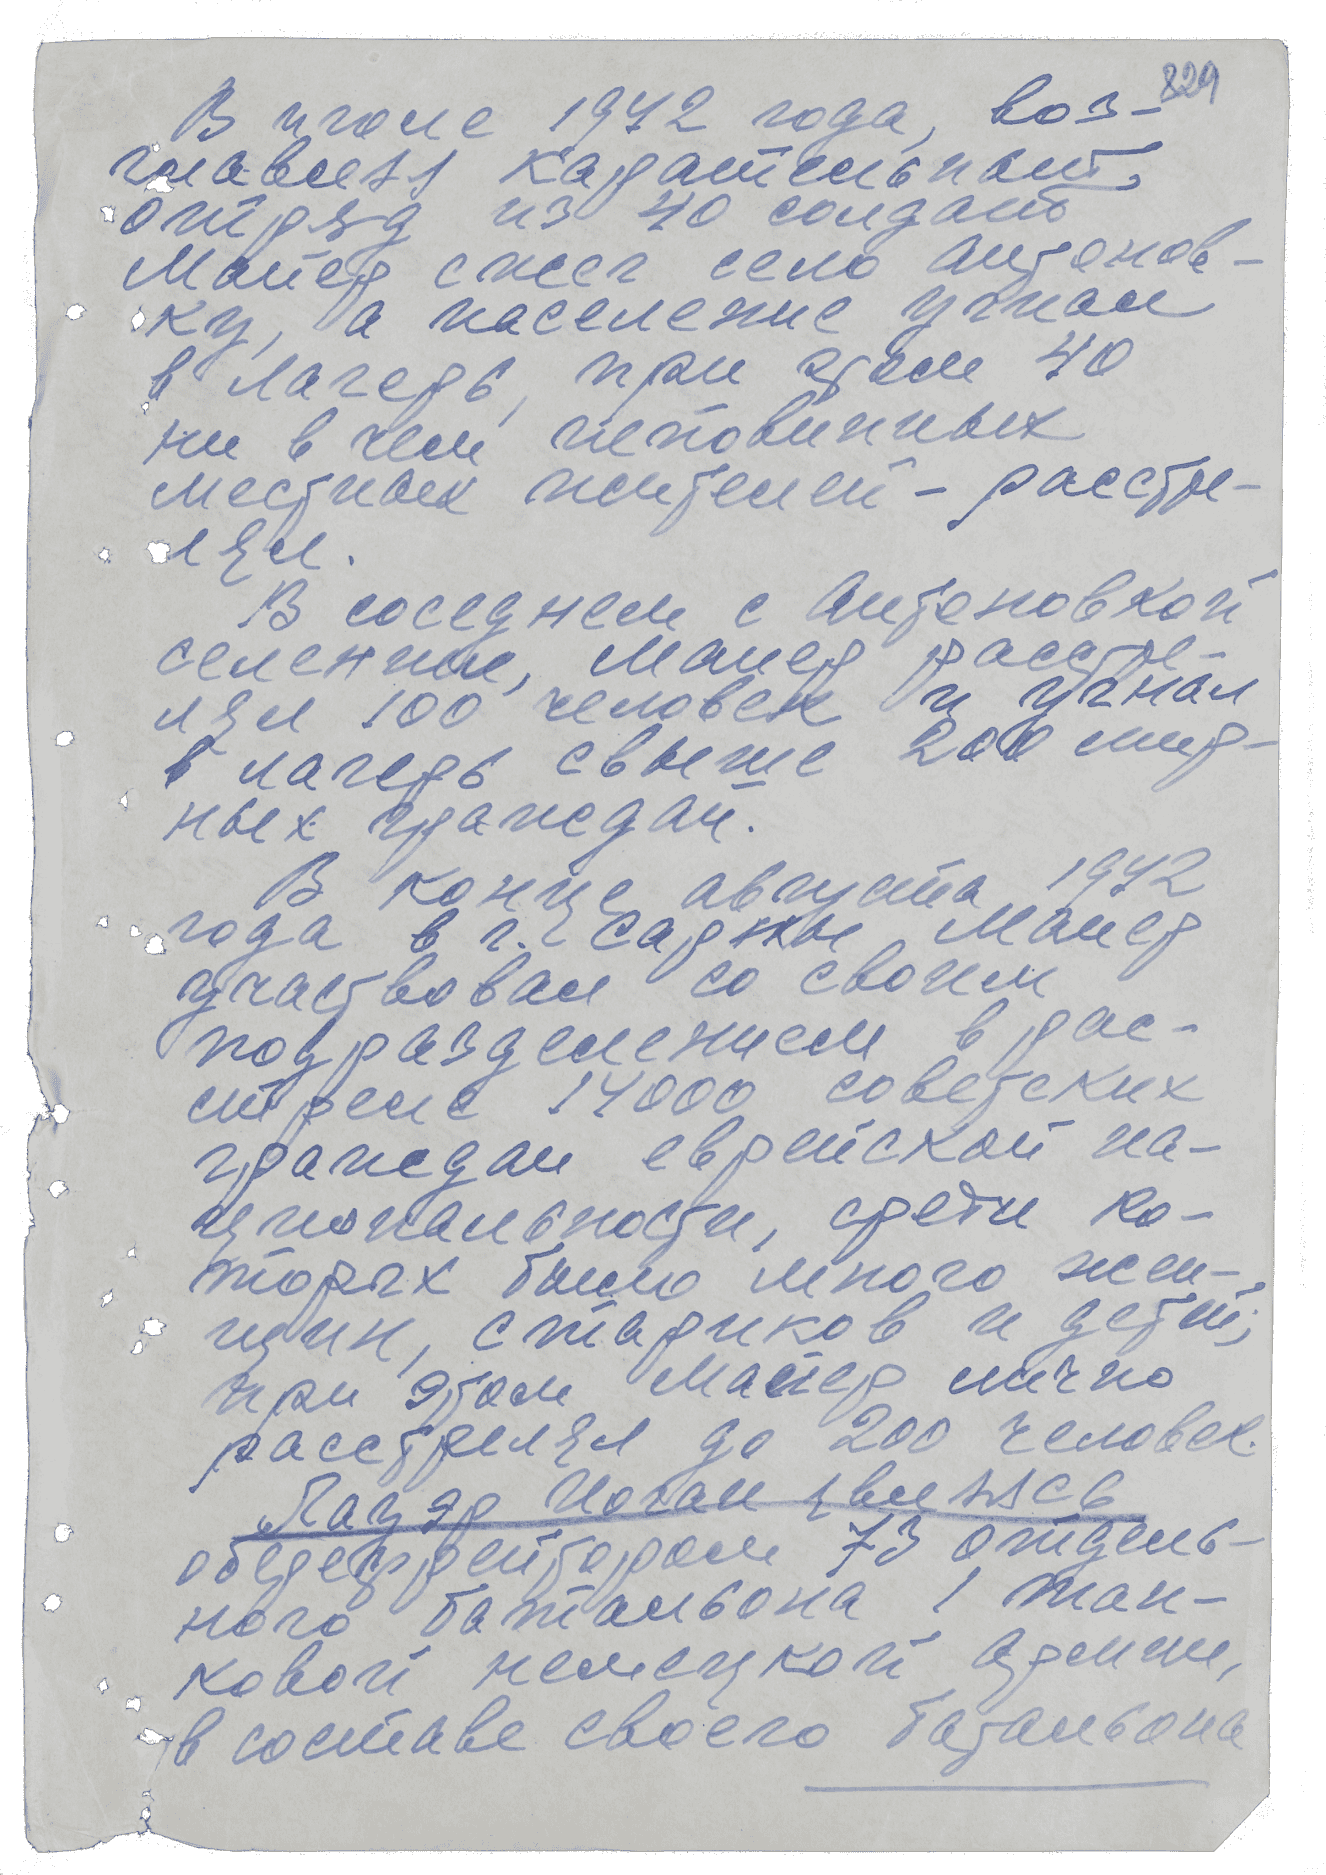 829
В июле 1942 года, воз-
главляя карательный
отряд из 40 солдат
Майер сжег село Антонов-
ку, а население угнал
в лагерь, при этом 40
ни в чем неповинных
местных жителей - расстре-
лял.
В соседнем с Антоновкой
селении, Майер расстре-
лял 100 человек и угнал
в лагерь свыше 200 мир-
ных граждан.
В конце августа 1942
года в г. Сарны Майер
участвовал со своим
подразделением в рас-
стреле 14000 советских
граждан еврейской на-
циональности, среди ко-
торых было много жен-
щин, стариков и детей,
при этом Майер лично
расстрелял до 200 человек.
Лауэр Иоган являясь
обер ефрейтором 73 отдель-
ного батальона 1 тан-
ковой немецкой армии,
в составе своего батальона